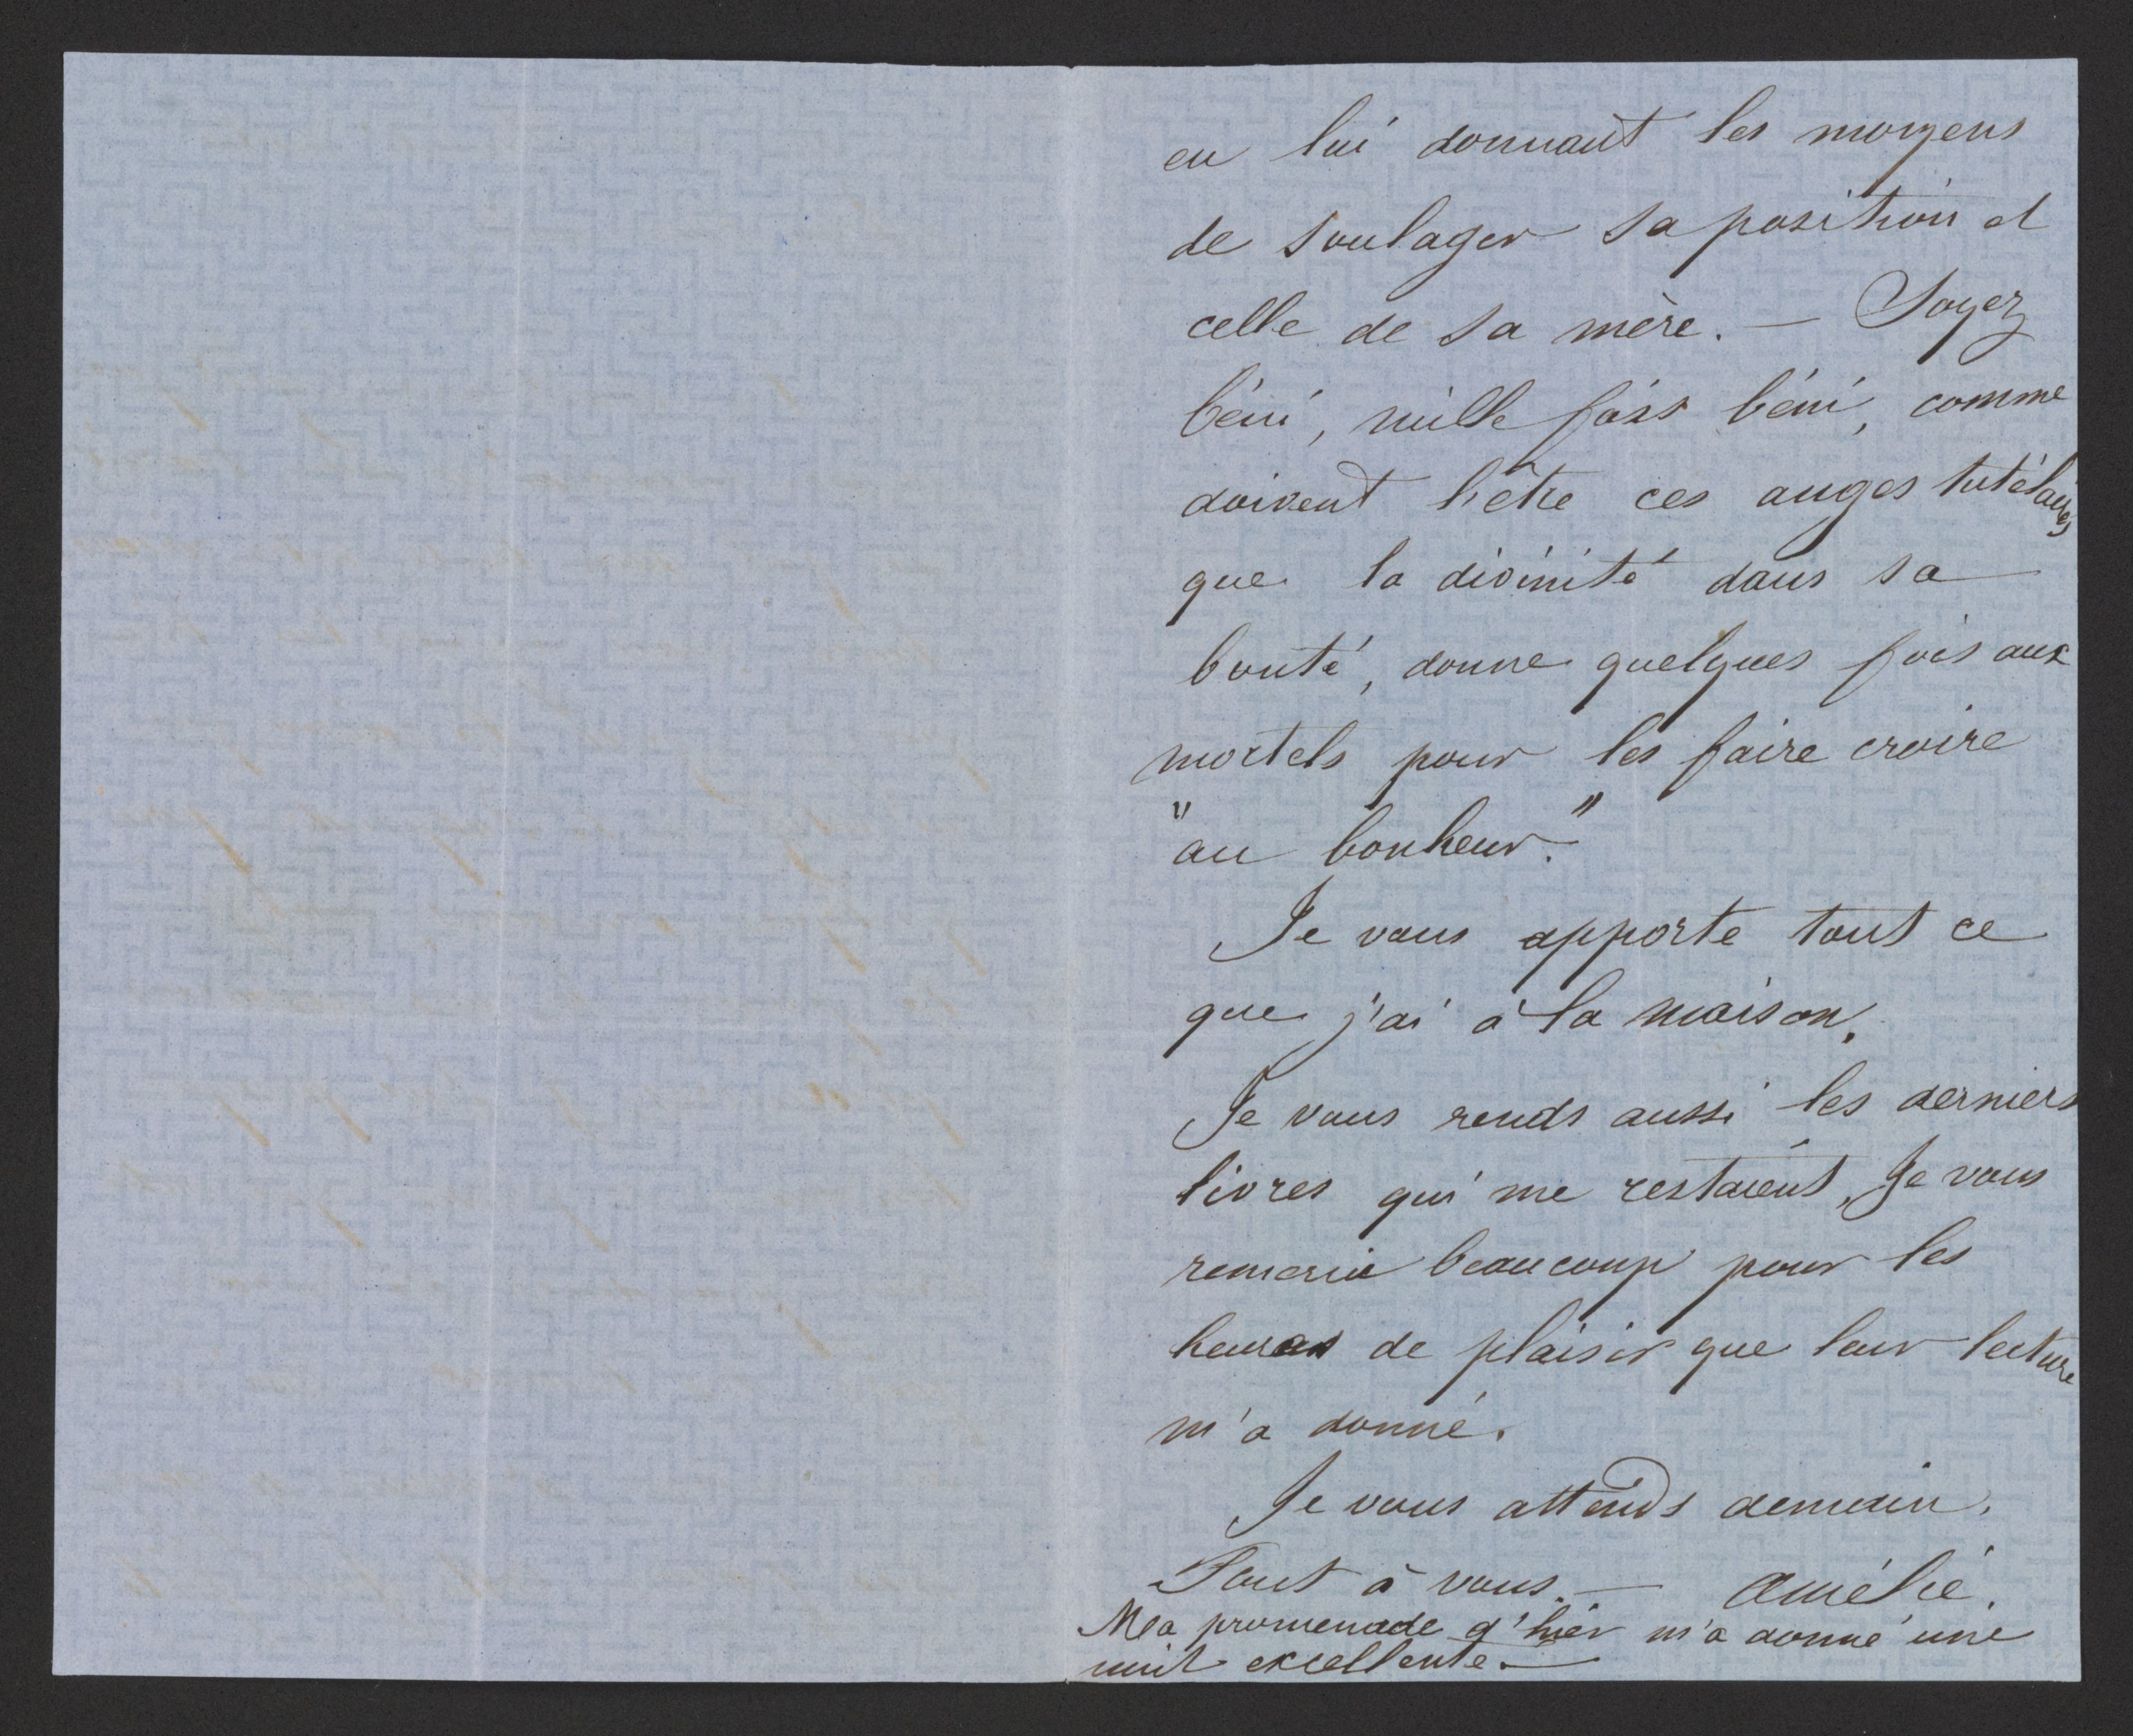 en lui donnant les moyens
de soulager sa position et
celle de sa mère. — Soyez
béni, mille fois béni, comme
doivent l'être ces anges tutélaires
que la divinité dans sa
bonté, donne quelques fois aux
mortels pour les faire croire
"au bonheur."
Je vous apporte tout ce
que j'ai à la maison.
Je vous rends aussi les derniers
livres qui me restaient, Je vous
remercie beaucoup pour les
heures de plaisir que leur lecture
m'a donné.
Je vous attends demain.
Tout à vous. — Amélie.
Ma promenade d'hier m'a donné une
nuit excellente. —